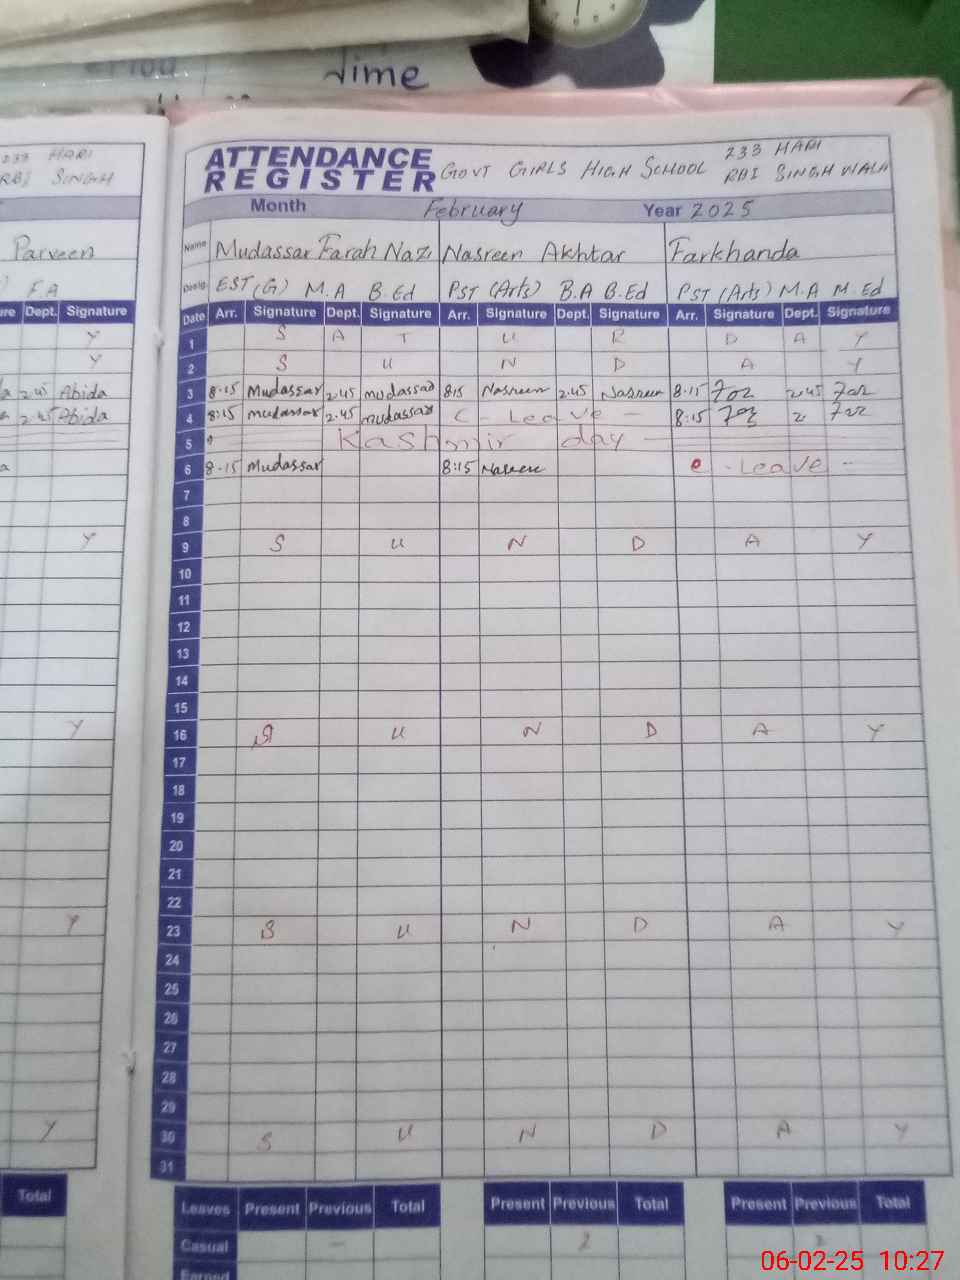 Time
233 HARI
RBI SINGH
Parveen
F.A
Dept. Signature
Y
Y
2.45 Abida
2.45 Abida
Y
Y
Y
Y
Total
ATTENDANCE REGISTER GOVT GIRLS HIGH SCHOOL 233 HARI
RBI SINGH WALA
Month February Year 2025
Name Mudassar Farah Naz Nasreen Akhtar Farkhanda
Desig. EST (G) M.A B.Ed PST (Arts) B.A B.Ed PST (Arts) M.A M.Ed
Date Arr. Signature Dept. Signature Arr. Signature Dept. Signature Arr. Signature Dept. Signature
1 S A T U R D A Y
2 S U N D A Y
3 8:15 Mudassar 2.45 mudassar 8:15 Nasreen 2.45 Nasreen 8:15 2.45
4 8:15 mudassar 2.45 mudassar C - Leave - 8:15 2
5 Kashmir day
6 8:15 Mudassar 8:15 Nasreen C - Leave -
7
8
9 S U N D A Y
10
11
12
13
14
15
16 S U N D A Y
17
18
19
20
21
22
23 S U N D A Y
24
25
26
27
28
29
30 S U N D A Y
31
Leaves Present Previous Total Present Previous Total Present Previous Total
Casual - 2 2
Earned
06-02-25 10:27